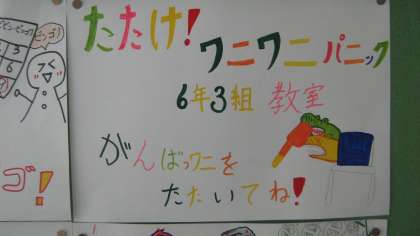 たたけ!
ワニワニパニック
6年3組 教室
がんばってワニを
たたいてね!
ゴ!
3
6